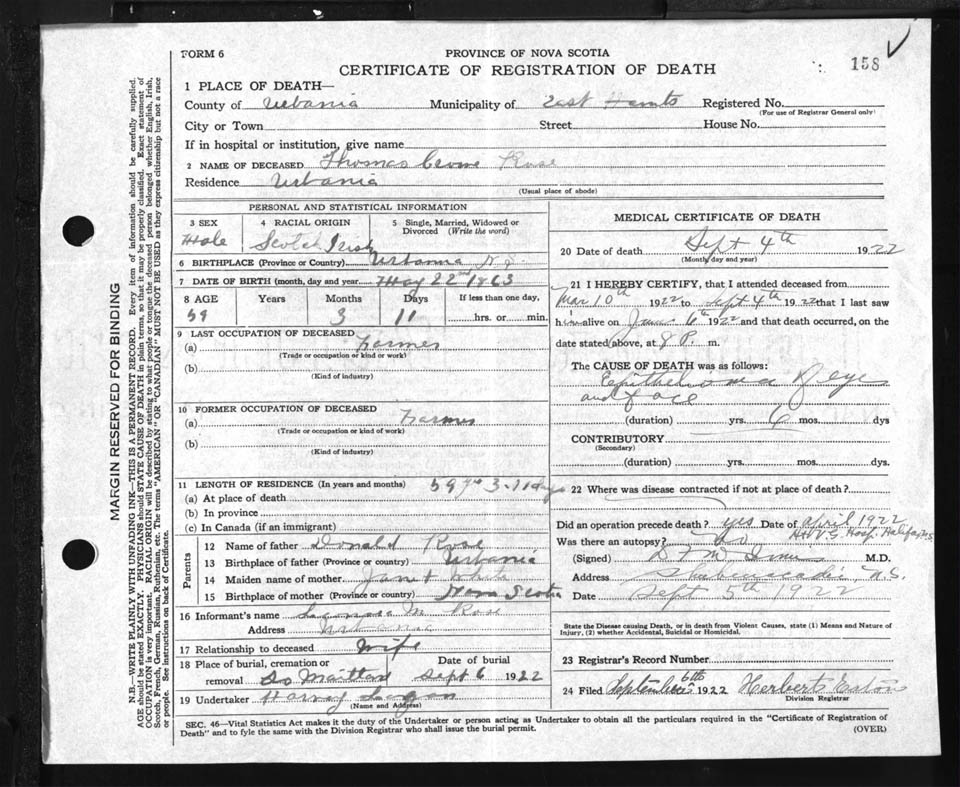 158
FORM 6
PROVINCE OF NOVA SCOTIA
CERTIFICATE OF REGISTRATION OF DEATH
1 PLACE OF DEATH—
County of Urbania Municipality of East Hants Registered No.
(For use of Registrar General only)
City or Town Street House No.
If in hospital or institution, give name
2 NAME OF DECEASED Thomas Rose
Residence Urbania
(Usual place of abode)
PERSONAL AND STATISTICAL INFORMATION
3 SEX 4 RACIAL ORIGIN 5 Single, Married, Widowed or Divorced (Write the word)
Male Scotch Irish
6 BIRTHPLACE (Province or Country) Urbania N.S.
7 DATE OF BIRTH (month, day and year) May 22nd 1863
8 AGE Years Months Days If less than one day,
59 3 11 hrs. or min.
9 LAST OCCUPATION OF DECEASED
(a) Farmer
(Trade or occupation or kind or work)
(b)
(Kind of industry)
10 FORMER OCCUPATION OF DECEASED
(a) Farmer
(Trade or occupation or kind of work)
(b)
(Kind of industry)
11 LENGTH OF RESIDENCE (In years and months) 59 yrs 3. 11 days
(a) At place of death
(b) In province
(c) In Canada (if an immigrant)
Parents
12 Name of father Donald Rose
13 Birthplace of father (Province or country) Urbania
14 Maiden name of mother Janet
15 Birthplace of mother (Province or country) Nova Scotia
16 Informant's name M Rose
Address Urbania
17 Relationship to deceased Wife
18 Place of burial, cremation or removal So Maitland Date of burial Sept 6 1922
19 Undertaker Harvey
(Name and Address)
MEDICAL CERTIFICATE OF DEATH
20 Date of death Sept 4th 1922
(Month, day and year)
21 I HEREBY CERTIFY, that I attended deceased from
Mar 10th 1922 to Sept 4th 1922 that I last saw
him alive on June 6th 1922 and that death occurred, on the
date stated above, at 8 P. m.
The CAUSE OF DEATH was as follows:
Epithelioma of eye
and face
(duration) yrs. 6 mos. dys
CONTRIBUTORY
(Secondary)
(duration) yrs. mos. dys.
22 Where was disease contracted if not at place of death?
Did an operation precede death? yes Date of April 1922
Was there an autopsy? no Hosp. Halifax N.S.
(Signed) M.D.
Address Shubenacadie N.S.
Date Sept 5th 1922
State the Disease causing Death, or in death from Violent Causes, state (1) Means and Nature of Injury, (2) whether Accidental, Suicidal or Homicidal.
23 Registrar's Record Number
24 Filed September 6th 1922 Herbert Eaton
Division Registrar
SEC. 46—Vital Statistics Act makes it the duty of the Undertaker or person acting as Undertaker to obtain all the particulars required in the "Certificate of Registration of
Death" and to fyle the same with the Division Registrar who shall issue the burial permit.
(OVER)
MARGIN RESERVED FOR BINDING
N.B.—WRITE PLAINLY WITH UNFADING INK—THIS IS A PERMANENT RECORD. Every item of information should be carefully supplied.
AGE should be stated EXACTLY. PHYSICIANS should STATE CAUSE OF DEATH in plain terms, so that it may be properly classified. Exact statement of
OCCUPATION is very important. RACIAL ORIGIN will be described by stating to what people or tongue the deceased person belonged whether English, Irish,
Scotch, French, German, Russian, Ruthenian, etc. The terms "AMERICAN" OR "CANADIAN" MUST NOT BE USED as they express citizenship but not a race
or people. See instructions on back of Certificate.